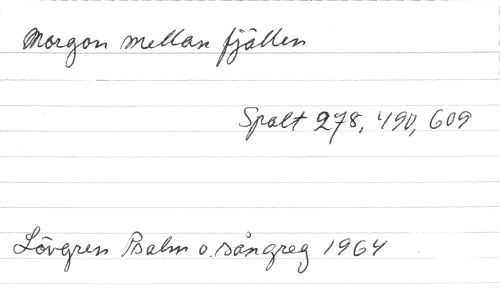 Morgon mellan fjällen
Spalt 278, 490, 609
Lövgren Psalm o. sångreg 1964